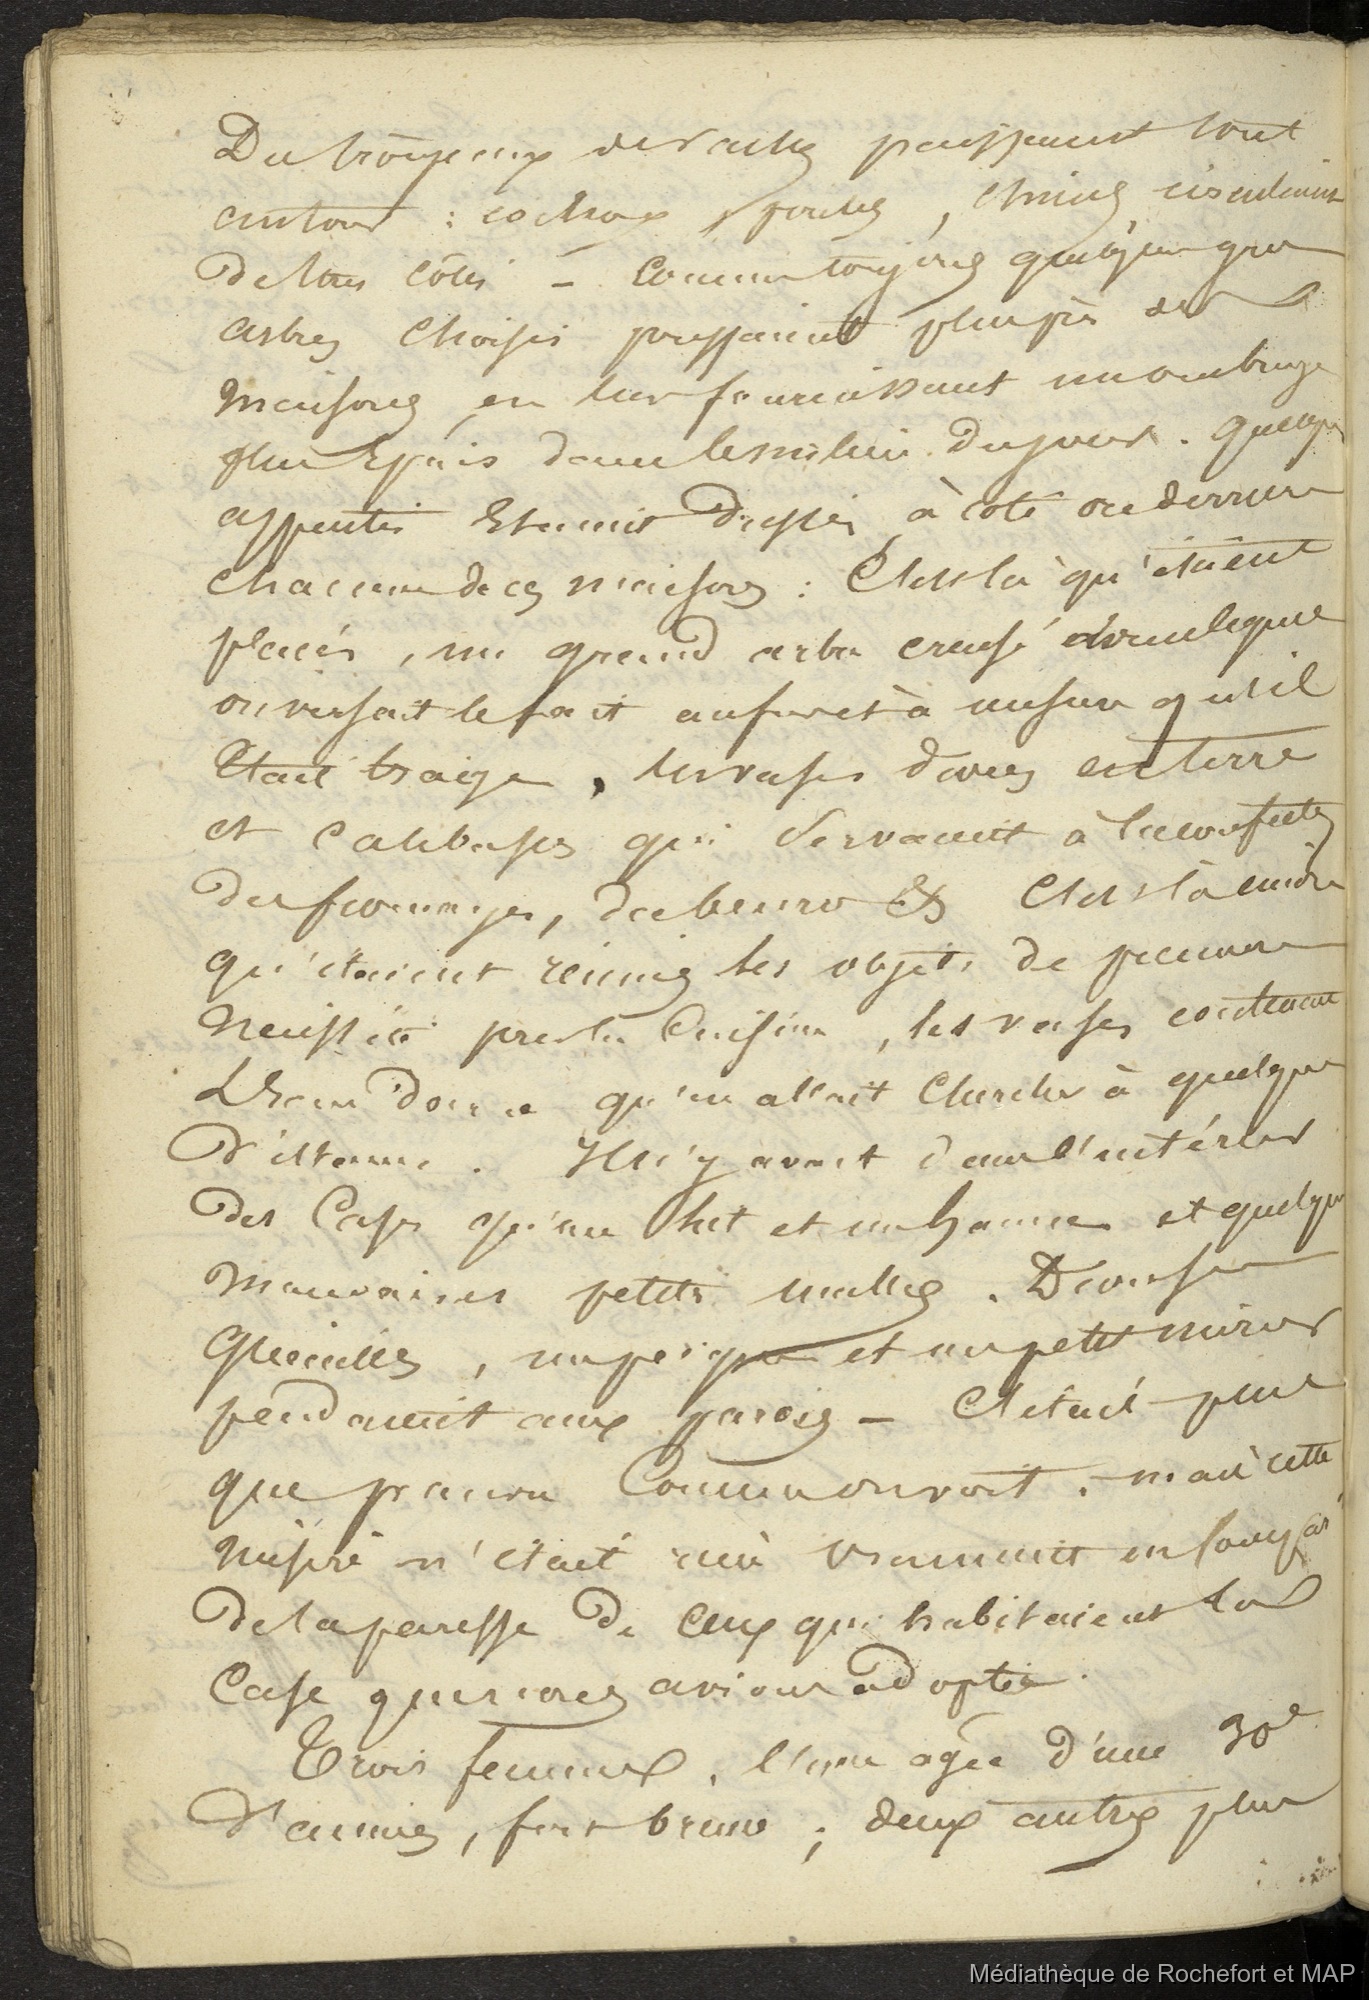 Des troupeaux de vaches paissaient tout
autour : cochons, poules, chiens, circulaient
de tous côtés – Comme toujours quelques gros
arbres choisis poussaient plus près des
maisons en leur fournissant un ombrage
plus épais dans le milieu du jour. quelques
appentis étaient dressés à côté ou derrière
chacune de ces maisons : C'est là qu'étaient
placés, un grand arbre creusé dans lequel
on versait le lait au fur et à mesure qu'il
était trait, les vases divers en terre
et calebasses qui servaient à la confection
des fromages, du beurre &. C'est là encore
qu'étaient réunis les objets de première
nécessité pour la Cuisine, les vases contenant
L'Eau douce qu'on allait chercher à quelque
distance. Il n'y avait dans l'intérieur
des Cases qu'un lit et un hamac et quelques
mauvaises petites malles. Diverses
guenilles, un peigne et un petit miroir
pendaient aux parois – C'était plus
que pauvre Comme on voit, mais cette
misère n'était due vraiment en français
de la paresse de ceux qui habitaient la
Case que nous avions adoptée.
Trois femmes, l'une agée d'une 30e
d'années, fort brune ; deux autres plus
Médiathèque de Rochefort et MAP